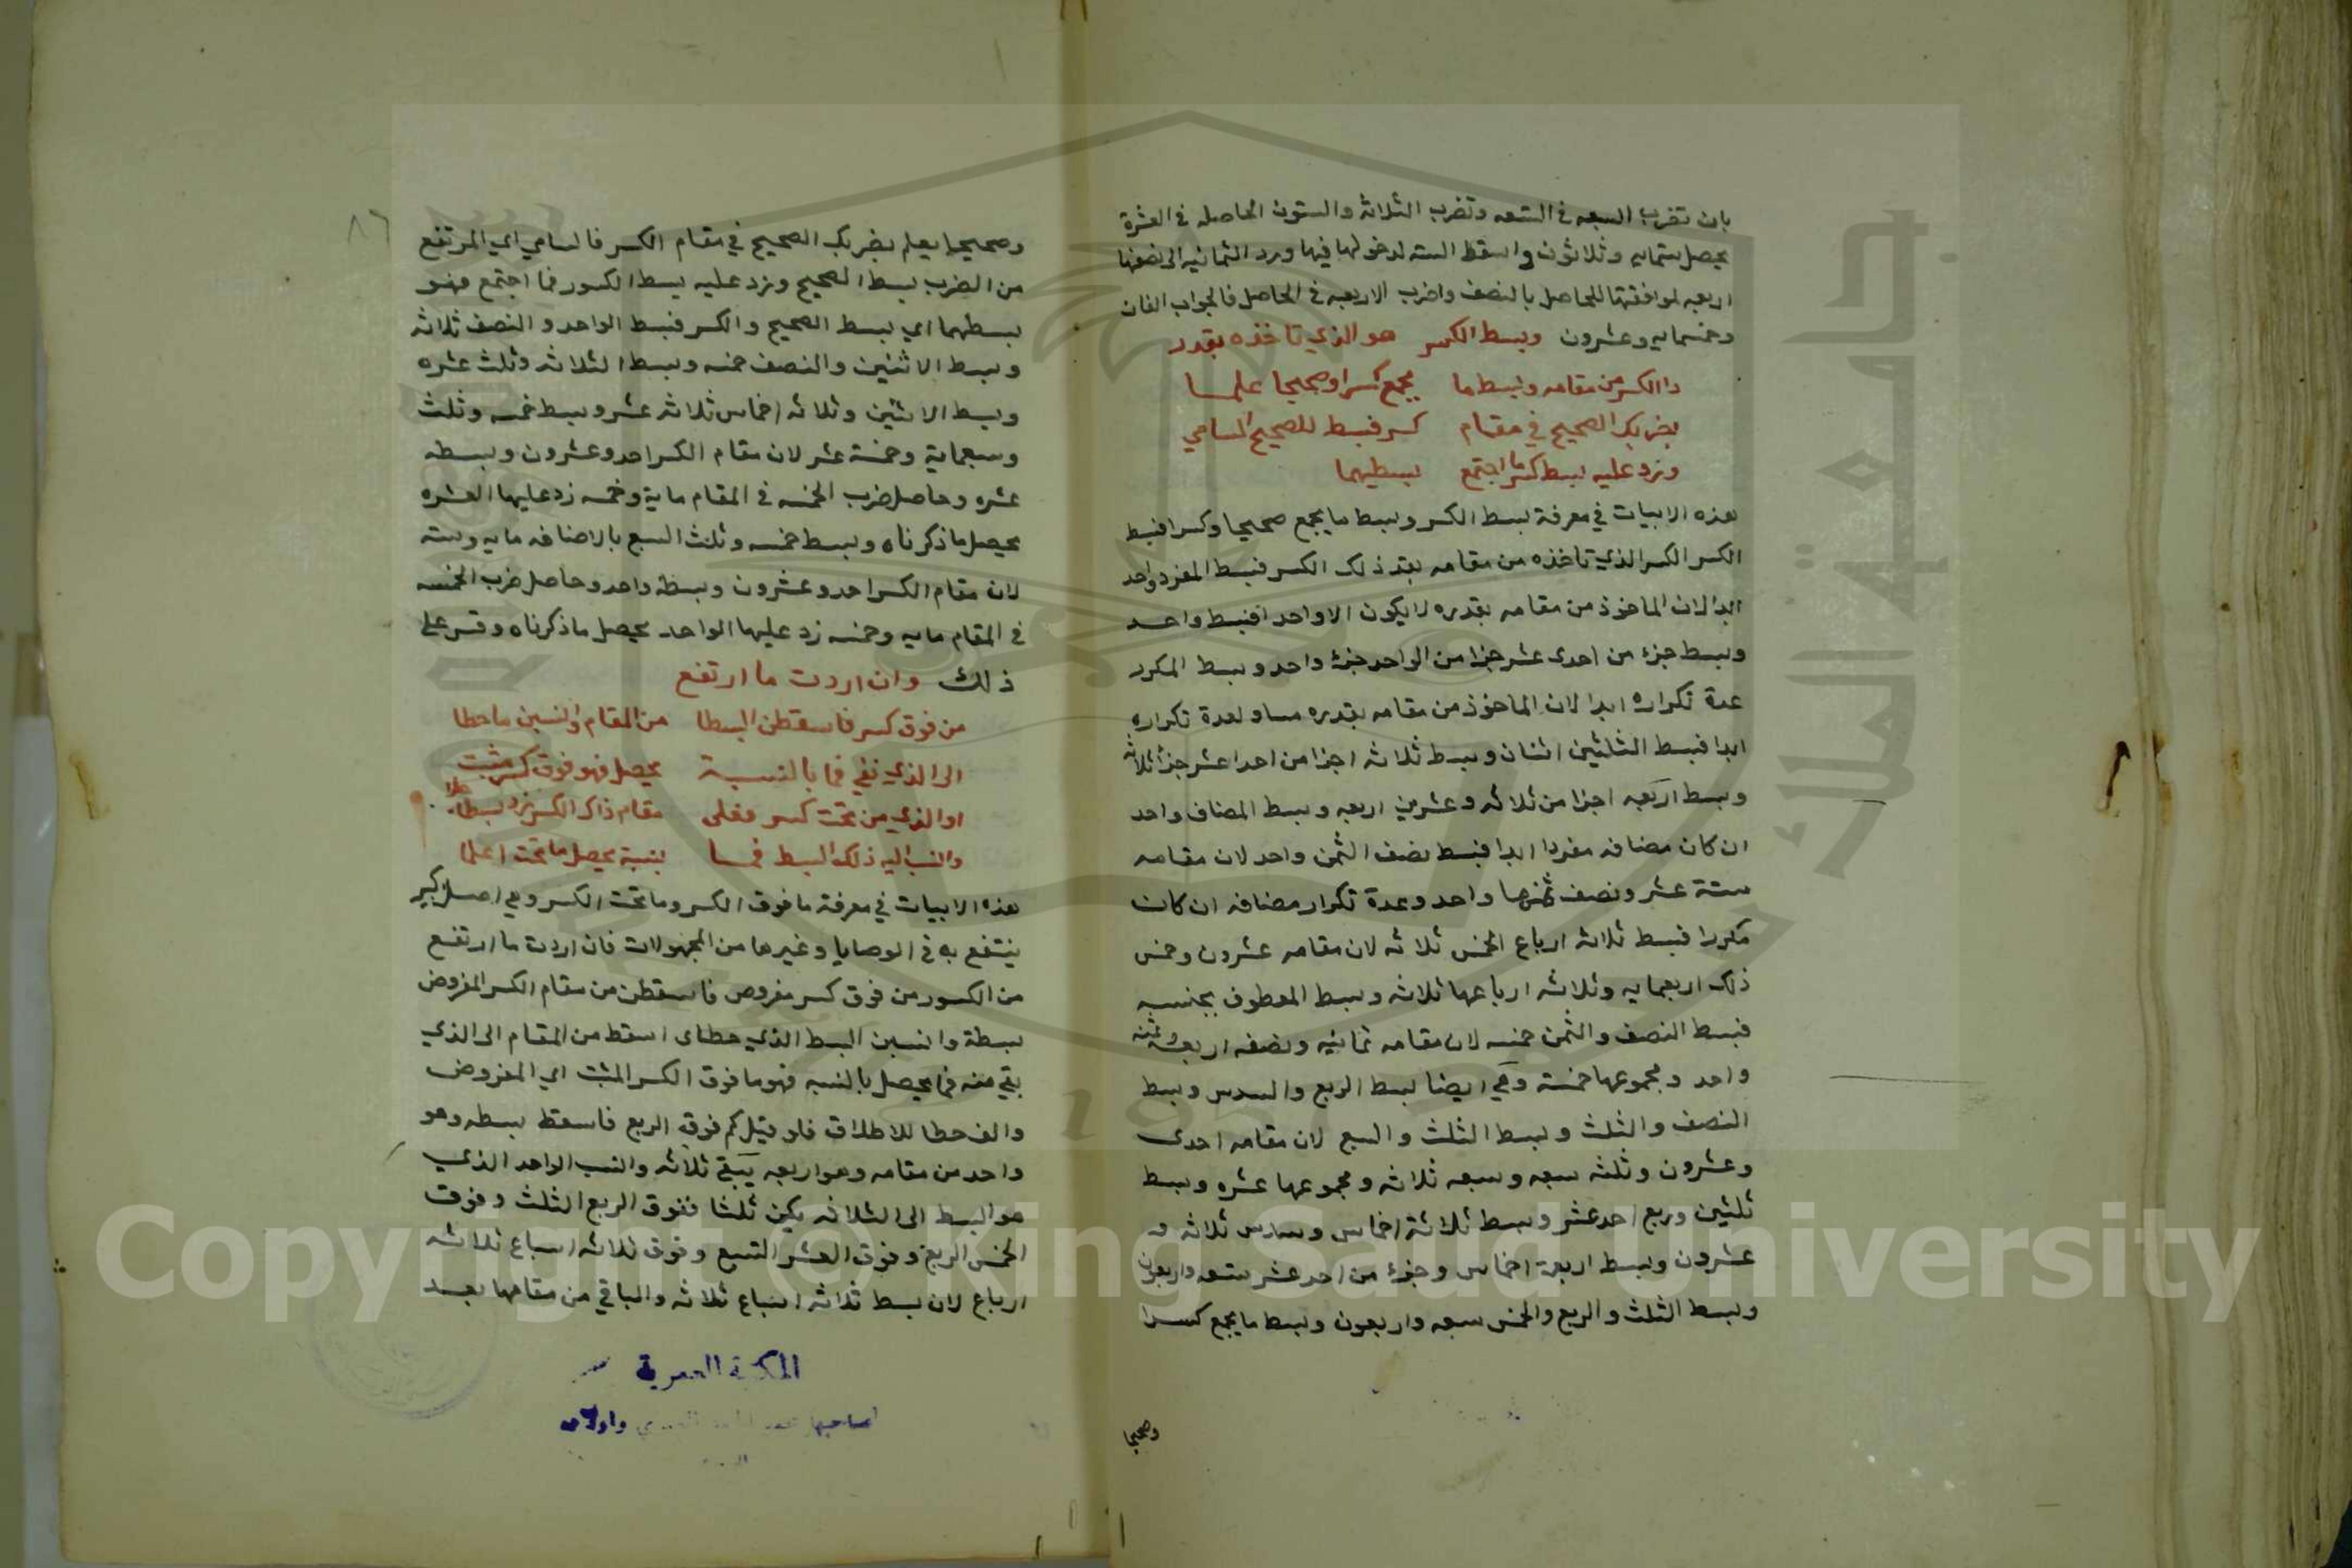 بان تضرب السبعه في التسعه وتضرب الثلاثه والستون الحاصله في العشرة
يحصل ستمايه وثلاثون واسقط السته لدخولها فيها ورد الثمانيه الى نصفها
اربعه لموافقتها للحاصل بالنصف واضرب الاربعه في الحاصل فالجواب الفان
وخمسمايه وعشرون وبسط الكسر هو الذي تاخذه بقدر
ذا الكسر من مقامه وبسط ما يجمع كسرا وصحيحا علما
بضربك الصحيح في مقام كسر فبسط للصحيح السامي
وزد عليه بسط كسر ما اجتمع بسطيهما
هذه الابيات في معرفة بسط الكسر وبسط ما يجمع صحيحا وكسرا فبسط
الكسر الكسر الذي تاخذه من مقامه بقدر ذلك الكسر فبسط المفرد واحد
ابدا لان الماخوذ من مقامه بقدره لا يكون الا واحد افبسط واحد
وبسط جزء من احدى عشر جزا من الواحد جزء واحد وبسط المكرر
عدة تكراره ابدا لان الماخوذ من مقامه بقدره مساو لعدة تكراره
ابدا فبسط الثلثين اثنان وبسط ثلاثه اجزا من احدا عشر جزا ثلاثه
وبسط اربعه اجزا من ثلاثه وعشرين اربعه وبسط المضاف واحد
ان كان مضافه مفردا ابدا فبسط نصف الثمن واحد لان مقامه
ستة عشر ونصف ثمنها واحد وعدة تكرار مضافه ان كان
مكررا فبسط ثلاثه ارباع الخمس ثلاثه لان مقامه عشرون وخمس
ذلك اربعمايه وثلاثه ارباعها ثلاثه وبسط المعطوف بجنسيه
فبسط النصف والثمن خمسه لان مقامه ثمانيه ونصفه اربعه وثمنه
واحد ومجموعها خمسة وهي ايضا بسط الربع والسدس وبسط
النصف والثلث وبسط الثلث والسبع لان مقامه احدى
وعشرون وثلثه سبعه وسبعه ثلاثه ومجموعها عشره وبسط
ثلثين وربع احد عشر وبسط ثلاثة اخماس وسدس ثلاثه و
عشرون وبسط اربعة اخماس وجزء من احد عشر تسعه واربعون
وبسط الثلث والربع والخمس سبعه واربعون وبسط ما يجمع كسرا
وصحيحا
٨٦
وصحيحا يعلم بضربك الصحيح في مقام الكسر فالسامي اي المرتفع
من الضرب بسط الصحيح وزد عليه بسط الكسور فما اجتمع فهو
بسطهما اي بسط الصحيح والكسر فبسط الواحد والنصف ثلاثه
وبسط الاثنين والنصف خمسه وبسط الثلاثه وثلث عشره
وبسط الاثنين وثلاثه اخماس ثلاثه عشر وبسط خمسه وثلث
وسبعماية وخمسة عشر لان مقام الكسر احد وعشرون وبسطه
عشره وحاصل ضرب الخمسه في المقام ماية وخمسه زد عليها العشره
يحصل ما ذكرناه وبسط خمسه وثلث السبع بالاضافه مايه وسته
لان مقام الكسر احد وعشرون وبسطه واحد وحاصل ضرب الخمسه
في المقام مايه وخمسه زد عليها الواحد يحصل ما ذكرناه وقس على
ذلك وان اردت ما ارتفع
من فوق كسر فاسقطن البسطا من المقام وانسبن ما حطا
الى الذي بقي فما بالنسبة يحصل فهو فوق كسر مثبت
او الذي من تحت كسر فعلى مقام ذاك الكسر زد بسطا علا
وانسب اليه ذلك البسط فما بنسبة يحصل ما تحت اعلما
هذه الابيات في معرفة ما فوق الكسر وما تحت الكسر وهي اصل كبير
ينتفع به في الوصايا وغيرها من المجهولات فان اردت ما ارتفع
من الكسور من فوق كسر مفروض فاسقطن من مقام الكسر المفروض
بسطة وانسبن البسط الذي حط اى اسقط من المقام الى الذي
بقي منه فما يحصل بالنسبه فهو ما فوق الكسر المثبت اي المفروض
والف حطا للاطلاق فلو قيل كم فوق الربع فاسقط بسطه وهو
واحد من مقامه وهو اربعه يبقى ثلاثه وانسب الواحد الذي
هو البسط الى الثلاثه يكن ثلثا ففوق الربع الثلث وفوق
الخمس الربع وفوق العشر التسع وفوق ثلاثه اسباع ثلاثه
ارباع لان بسط ثلاثه اسباع ثلاثه والباقي من مقامها بعد
المكتبة العمرية
لصاحبها واولاده
Copyright © King Saud University
جامعة الملك
1957